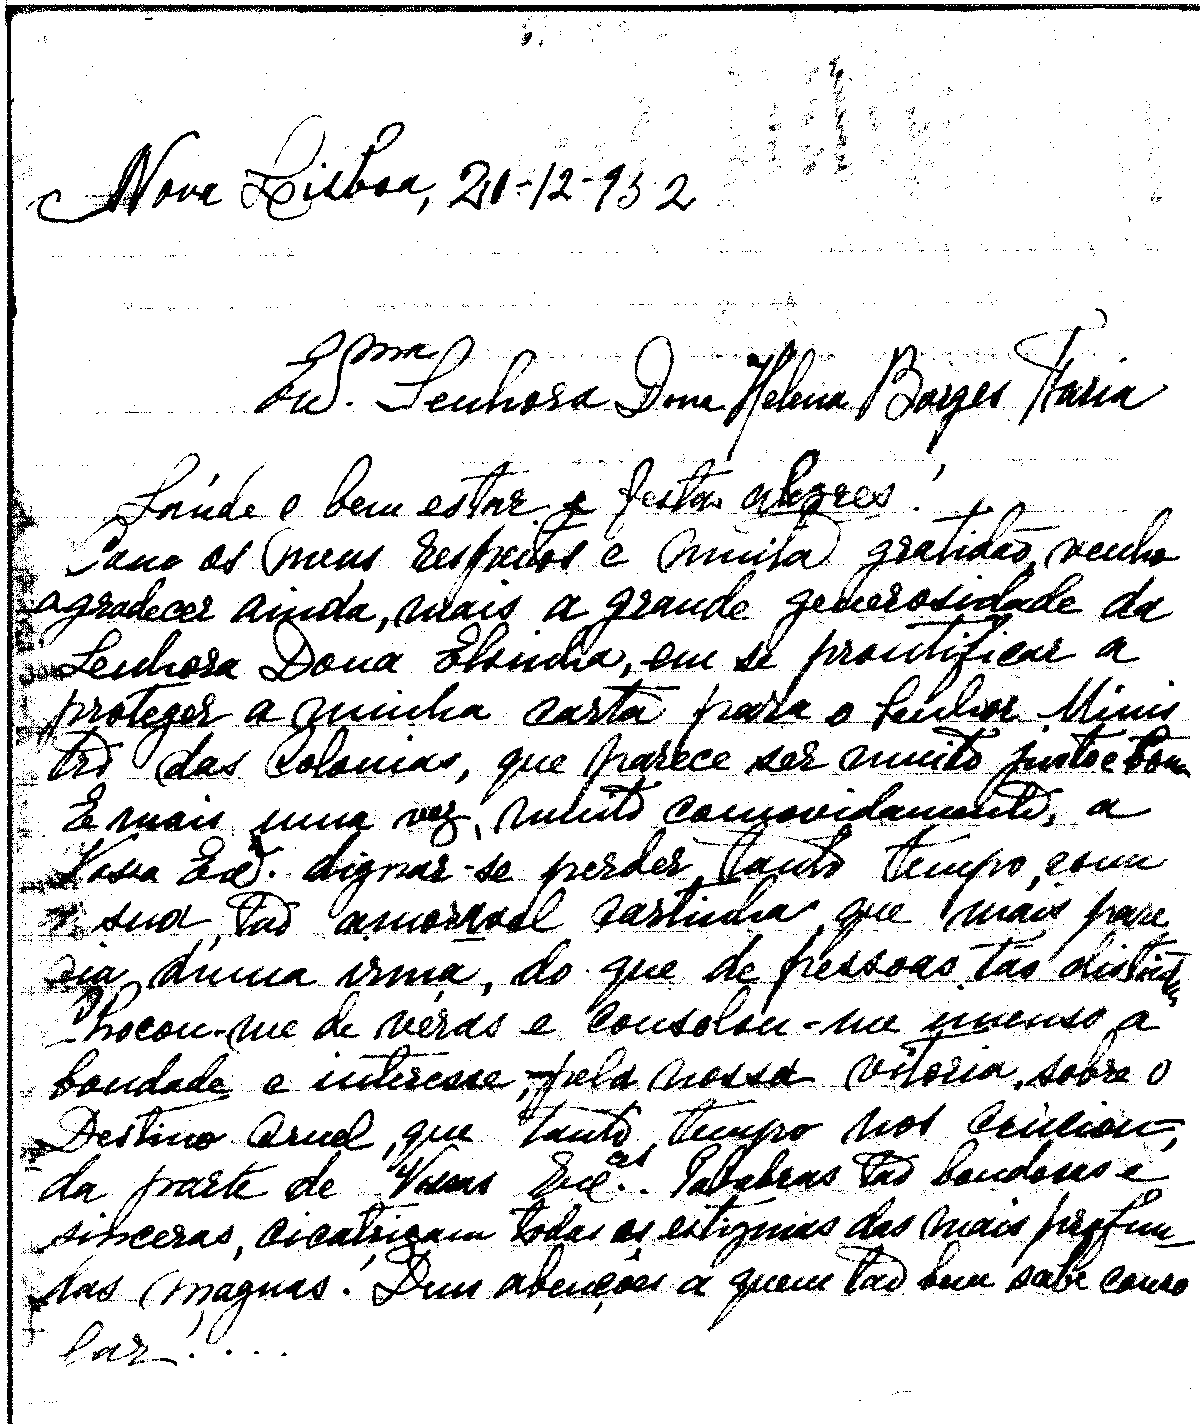 Nova Lisboa, 20-12-952
Exma. Senhora Dona Helena Borges Faria
Saúde e bem estar e festas alegres!
Como os meus respeitos e muita gratidão, venho
agradecer ainda, mais a grande generosidade da
Senhora Dona, em se prontificar a
proteger a minha carta para o Senhor Minis
tro das Colonias, que parece ser muito justo e bom
E mais uma vez, muito comovidamente, a
Vossa Exª. dignar-se perder, tanto tempo, com
sua, tão amorosol cartinha, que mais pare
cia, duma irmã, do que de pessoas, tão distintas
Chocou-me de véras e consolou-me imenso a
bondade e interesse, pela nossa vitoria, sobre o
Destino Cruel, que tanto, tempo nos,
da parte de Vossas Exªs. Palabras tão bondosas e
sinceras, cicatrizam todas os estigmas das mais profun
das magnas! Deus abençôes a quem tão bem sabe conso
lar!....